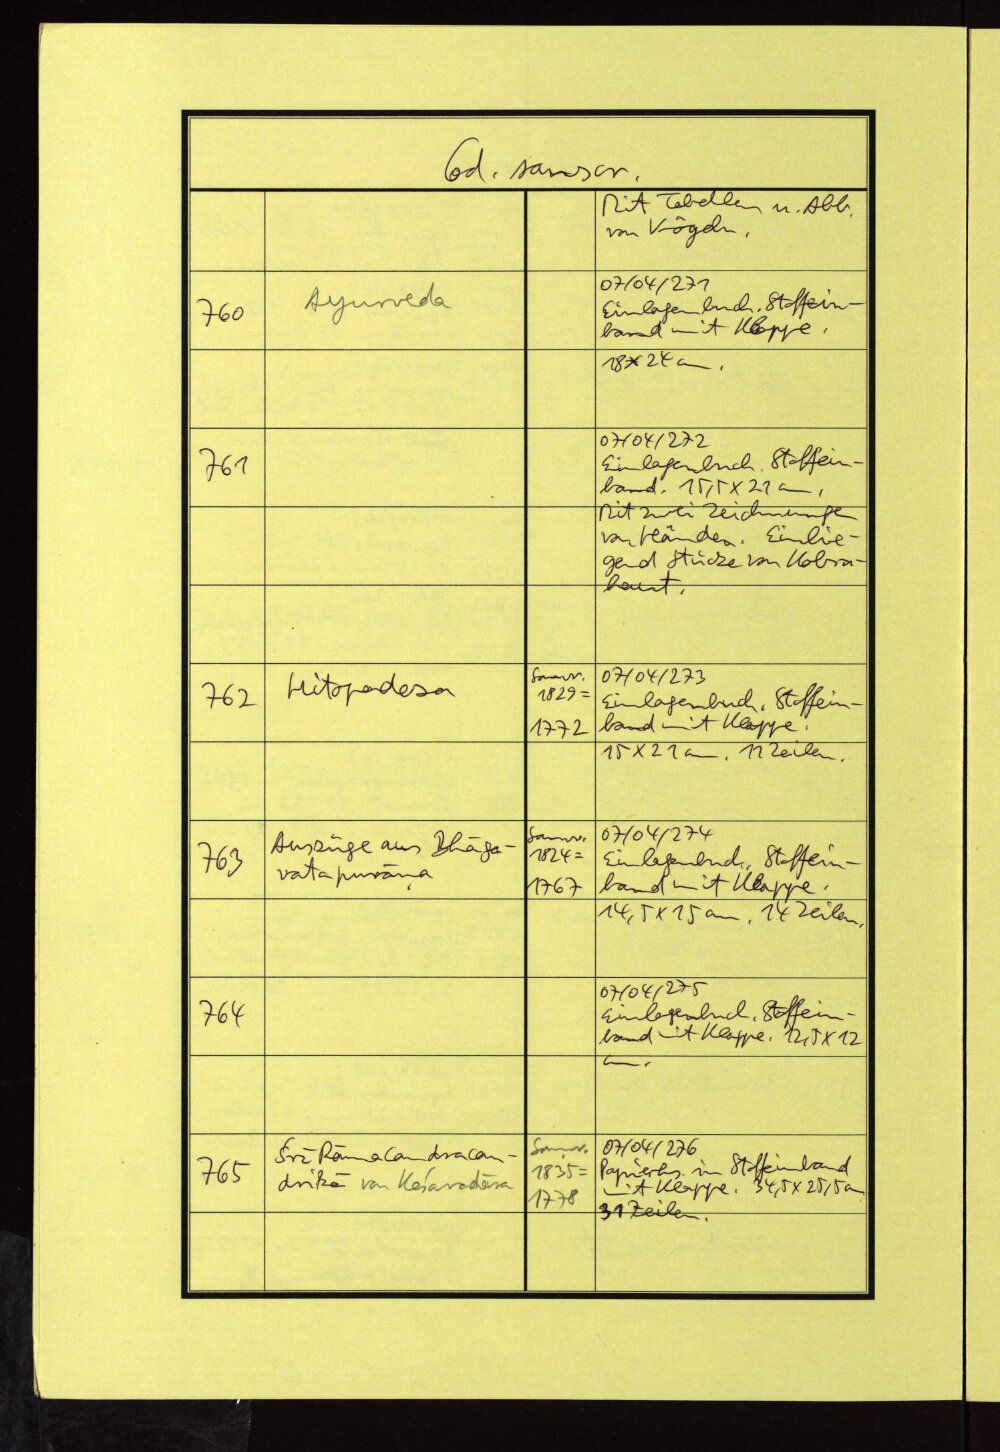 Cod. sanscr.
Mit Tabellen u. Abb.
von Vögeln.
760
Ayurveda
07/04/271
Einlagenbuch. Stoffein-
band mit Klappe.
18 x 24 cm.
761
07/04/272
Einlagenbuch. Stoffein-
band. 15,5 x 21 cm.
Mit zwei Zeichnungen
von Händen. Einlie-
gend Stücke von Kobra-
haut.
762
Hitopadesa
Samv.
1829 =
1772
07/04/273
Einlagenbuch. Stoffein-
band mit Klappe.
15 x 21 cm. 11 Zeilen.
763
Auszüge aus Bhāga-
vatapurāṇa
Samv.
1824 =
1767
07/04/274
Einlagenbuch. Stoffein-
band mit Klappe.
14,5 x 15 cm. 14 Zeilen.
764
07/04/275
Einlagenbuch. Stoffein-
band mit Klappe. 12,5 x 12
cm.
765
Śrī Rāmacandracan-
drikā von Keśavadāsa
Samv.
1835 =
1778
07/04/276
Papierhs. in Stoffeinband
mit Klappe. 34,5 x 25,5 cm
31 Zeilen.